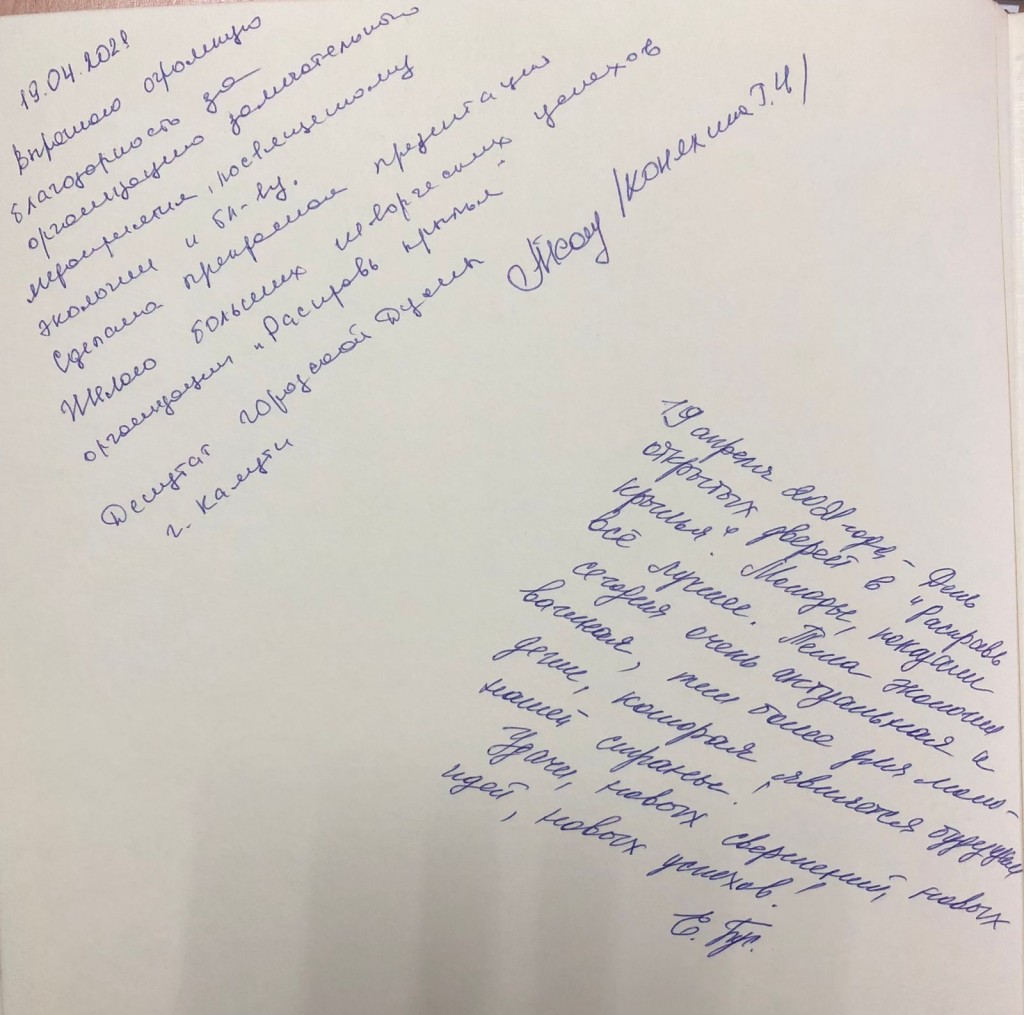 19.04.2021
Выражаю огромную
благодарность за
организацию замечательного
мероприятия, посвещенному
экологии и бл-ву.
Сделана прекрасная презентация
Желаю больших творческих успехов
организации "Расправь крылья"
Депутат городской Думы
г. Калуги
/Конянина Г.Ч/
19 апреля 2021 года – День
открытых дверей в "Расправь
крылья". Молодцы, показали
всё лучшее. Тема экологии
сегодня очень актуальная и
важная, тем более для моло-
дежи, которая является будущим
нашей страны!
Удачи, новых свершений, новых
идей, новых успехов!